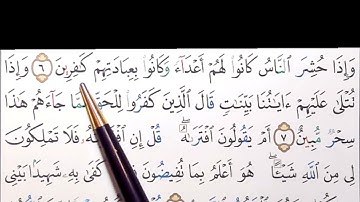 وَإِذَا حُشِرَ ٱلنَّاسُ كَانُوا۟ لَهُمْ أَعْدَآءً وَكَانُوا۟ بِعِبَادَتِهِمْ كَـٰفِرِينَ ٦ وَإِذَا
تُتْلَىٰ عَلَيْهِمْ ءَايَـٰتُنَا بَيِّنَـٰتٍ قَالَ ٱلَّذِينَ كَفَرُوا۟ لِلْحَقِّ لَمَّا جَآءَهُمْ هَـٰذَا
سِحْرٌ مُّبِينٌ ٧ أَمْ يَقُولُونَ ٱفْتَرَىٰهُ ۖ قُلْ إِنِ ٱفْتَرَيْتُهُۥ فَلَا تَمْلِكُونَ
لِى مِنَ ٱللَّهِ شَيْـًٔا ۖ هُوَ أَعْلَمُ بِمَا تُفِيضُونَ فِيهِ ۖ كَفَىٰ بِهِۦ شَهِيدًۢا بَيْنِى